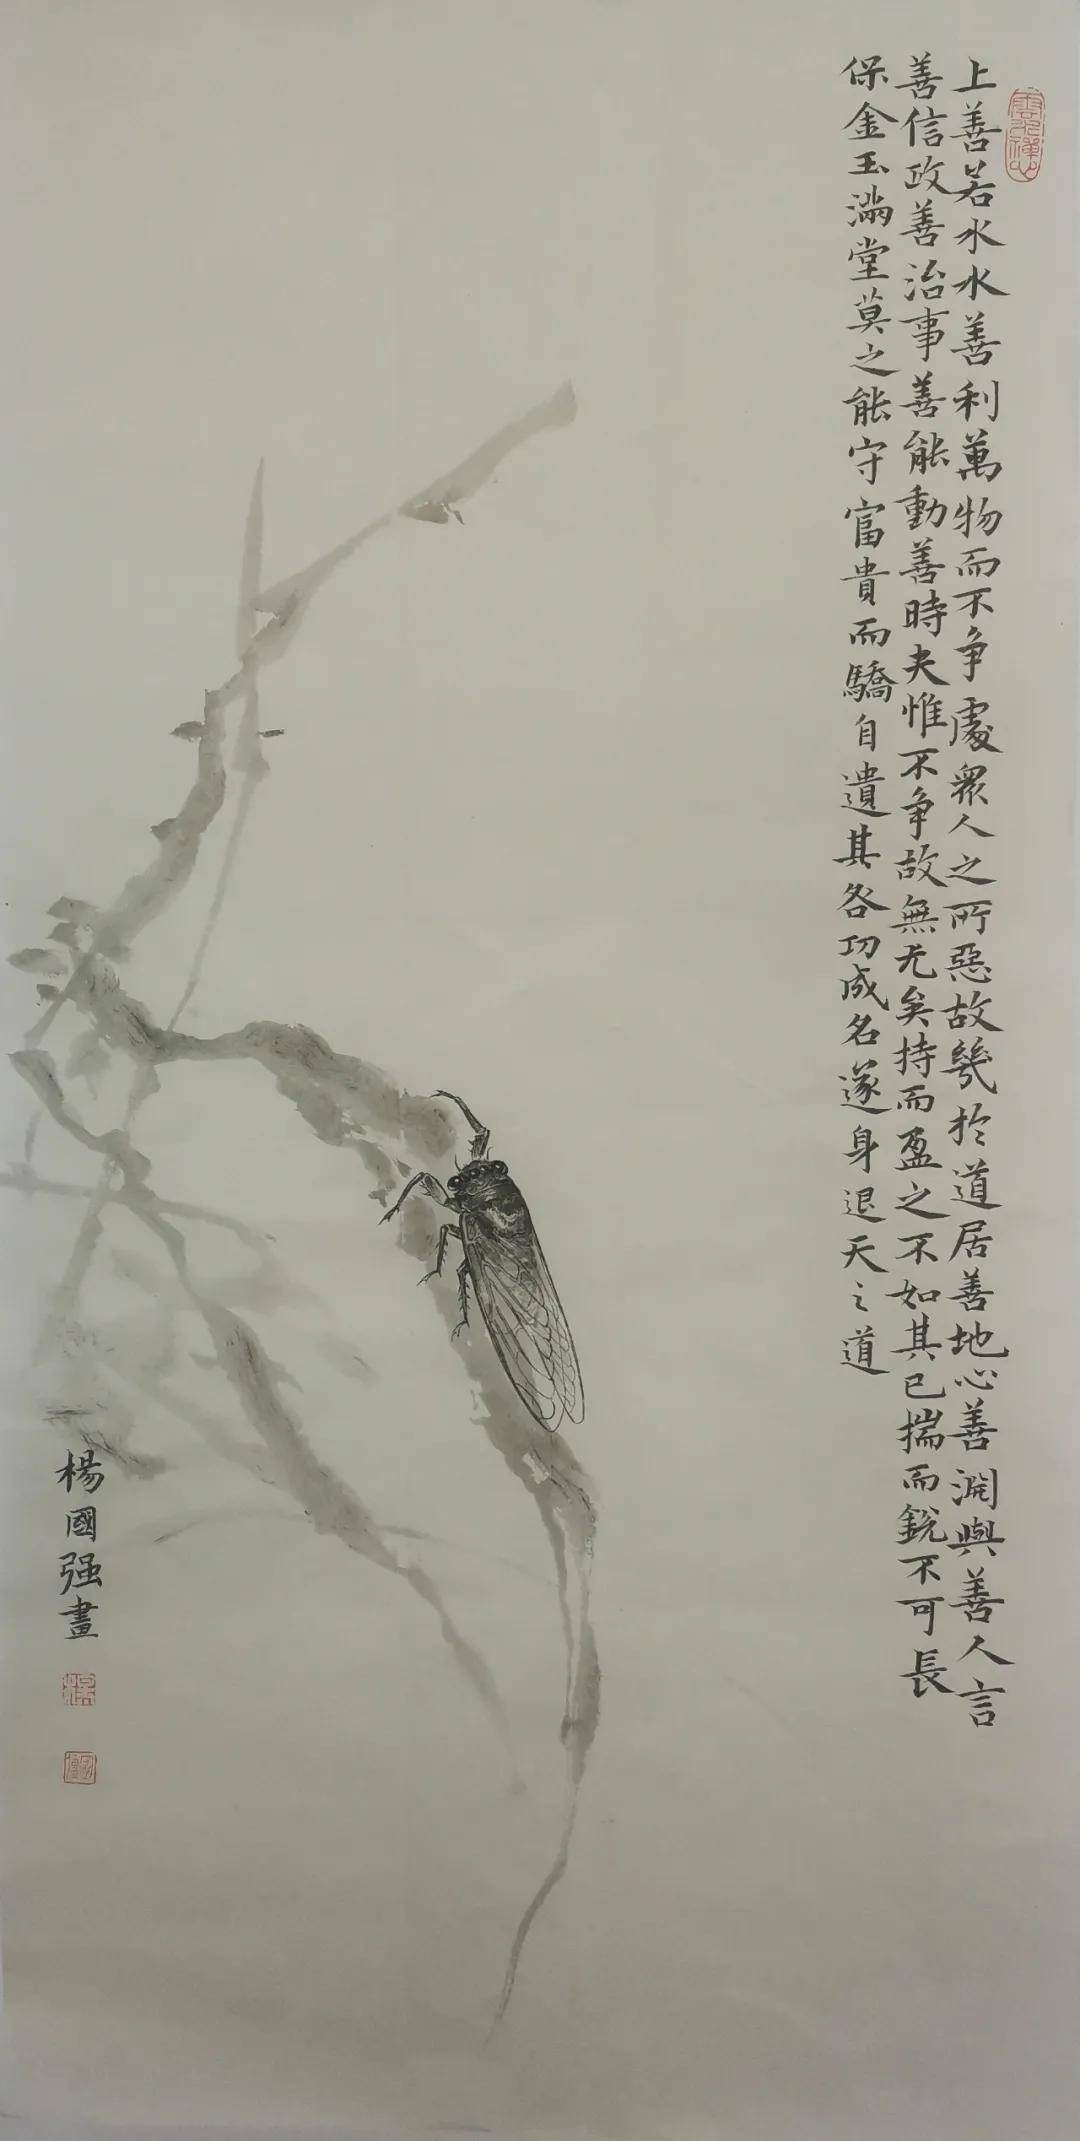 上善若水水善利萬物而不争處眾人之所惡故幾於道居善地心善淵與善人言
善信政善治事善能動善時夫惟不争故無尤矣持而盈之不如其已揣而銳不可長
保金玉滿堂莫之能守富貴而驕自遺其各功成名遂身退天之道
楊國强畫